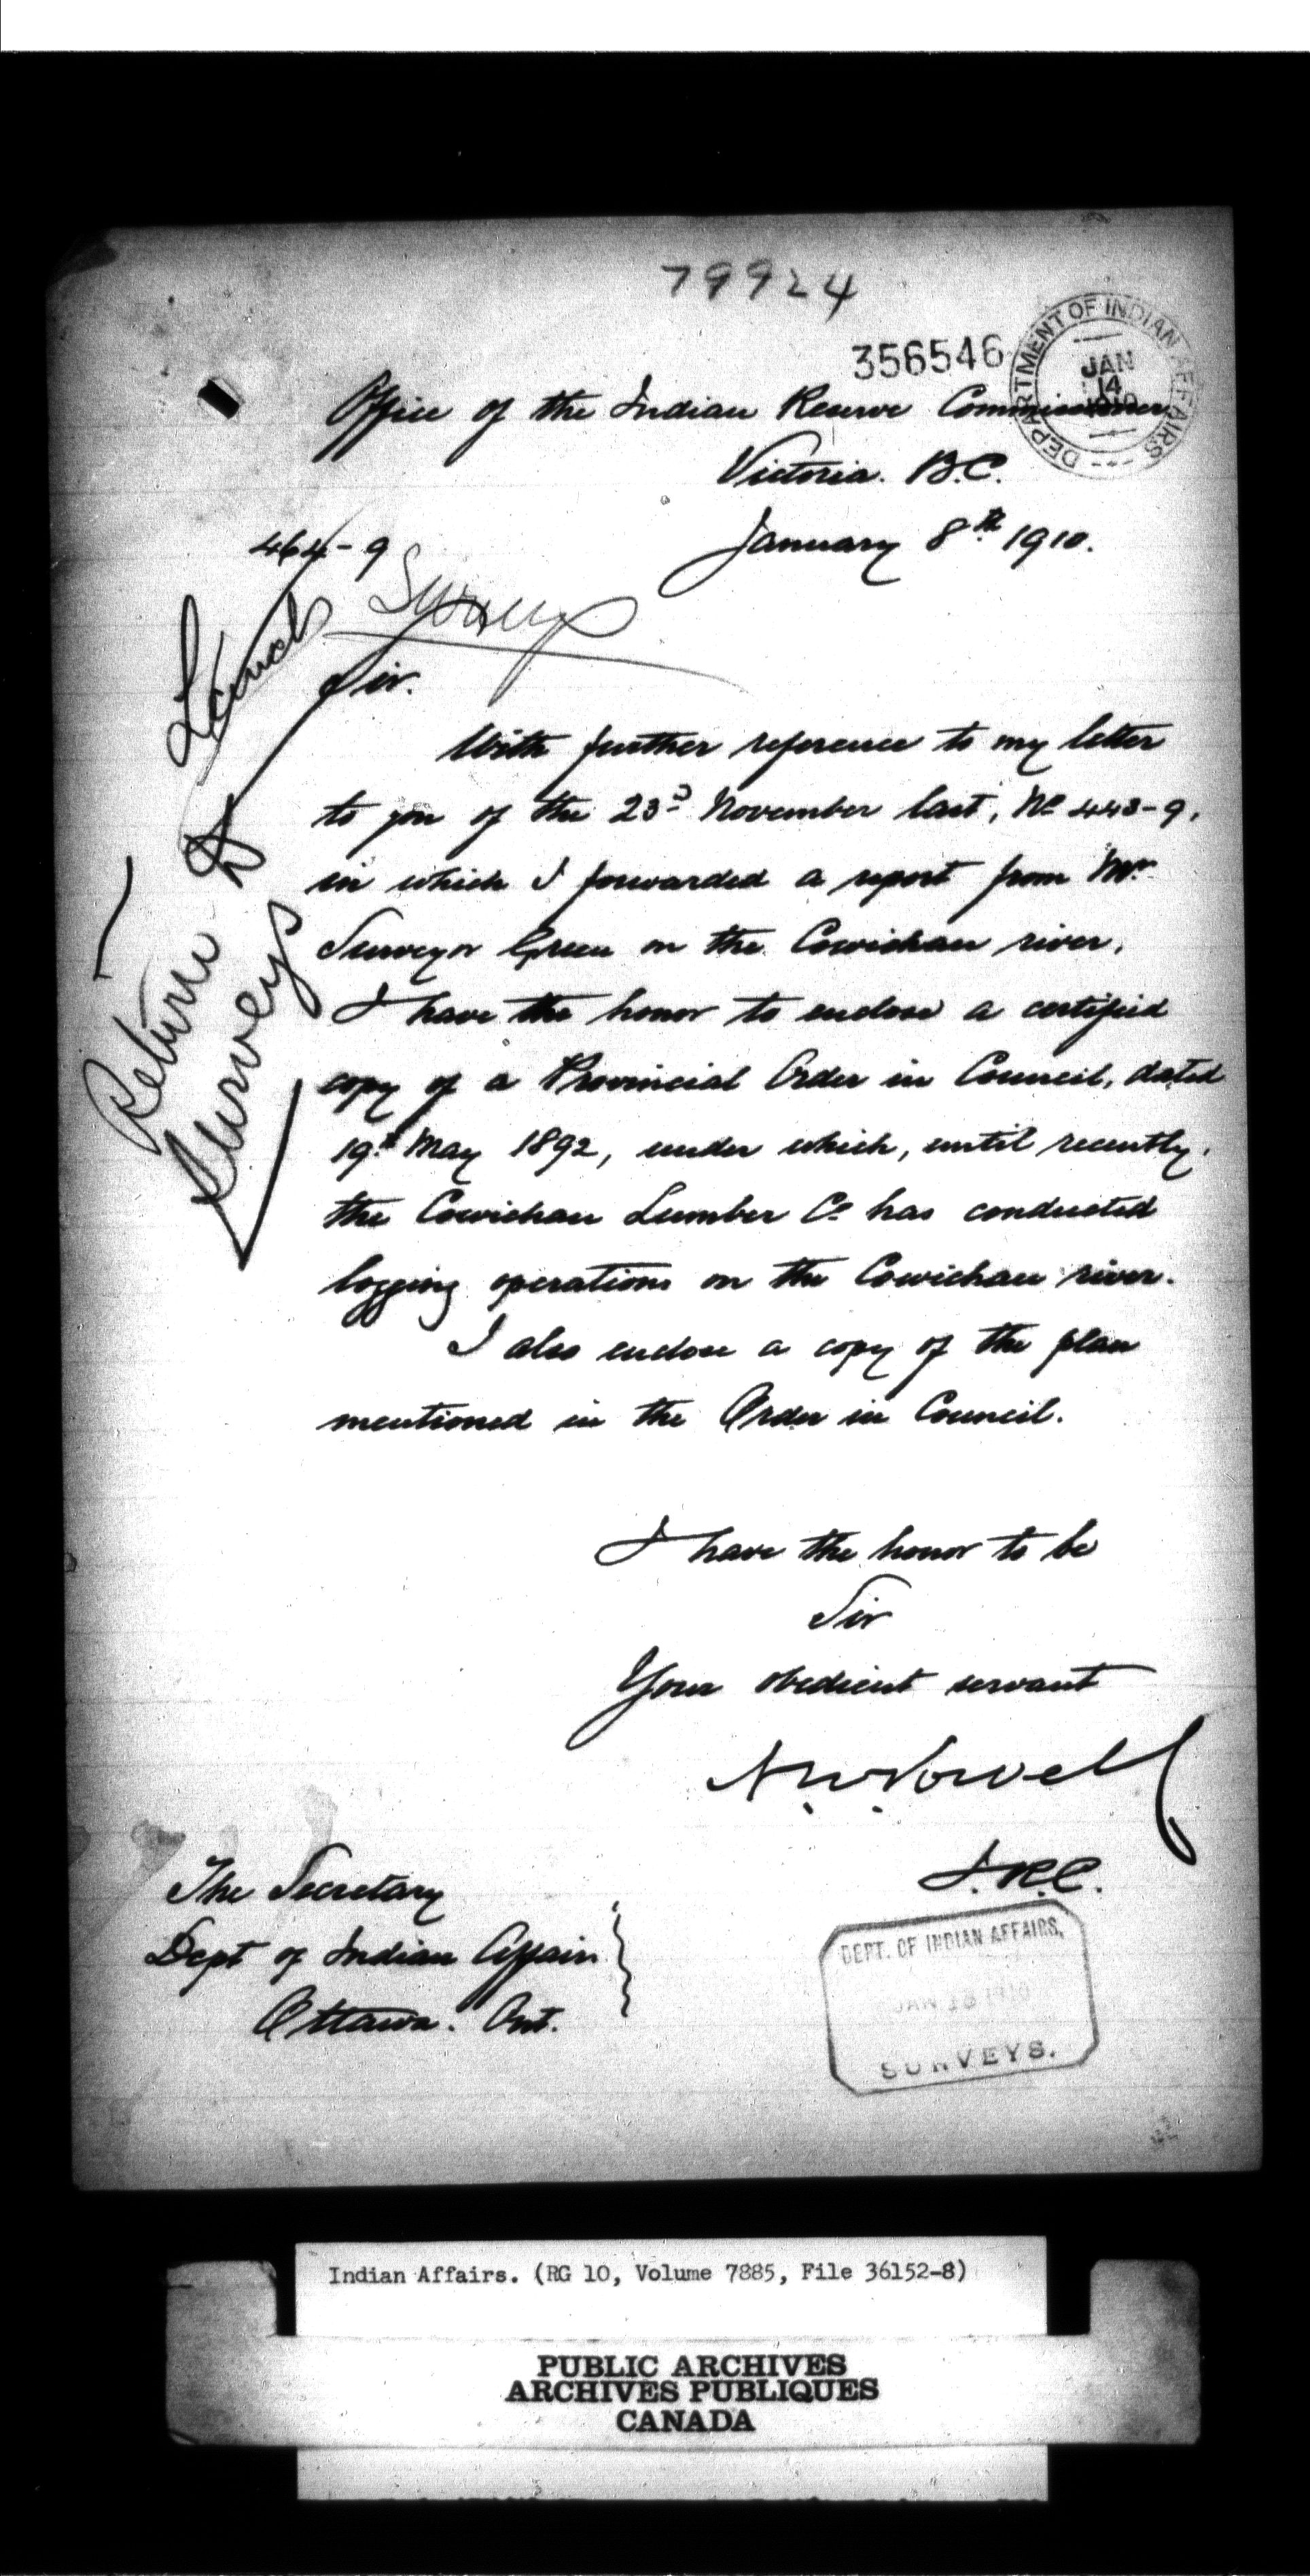 79924
356546
DEPARTMENT OF INDIAN AFFAIRS
JAN
14
1910
Office of the Indian Reserve Commissioner
Victoria. B.C.
January 8th 1910.
464-9
Surveys
Lands
Sir.
With further reference to my letter
to you of the 23d November last, No 443-9,
in which I forwarded a report from Mr
Surveyor Green on the Cowichan river,
I have the honor to enclose a certified
copy of a Provincial Order in Council, dated
19th May 1892, under which, until recently,
the Cowichan Lumber Co has conducted
logging operations on the Cowichan river.
I also enclose a copy of the plan
mentioned in the Order in Council.
Return to
Surveys
I have the honor to be
Sir
Your obedient servant
A.W. Vowell
I.R.C.
The Secretary
Dept of Indian Affairs
Ottawa. Ont.
DEPT. OF INDIAN AFFAIRS,
JAN 1910
SURVEYS.
Indian Affairs. (RG 10, Volume 7885, File 36152-8)
PUBLIC ARCHIVES
ARCHIVES PUBLIQUES
CANADA